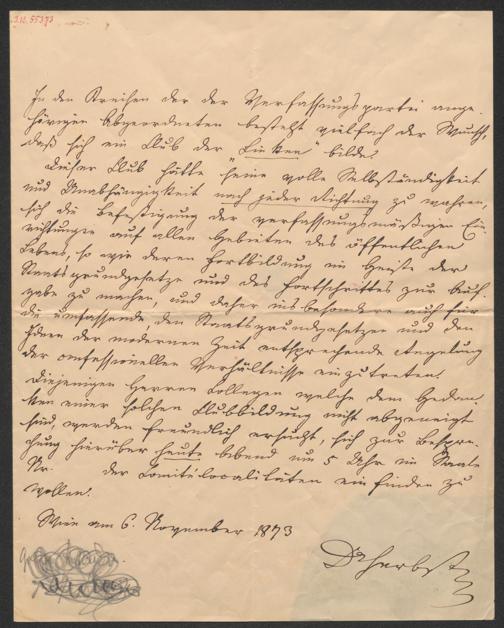 In den Kreisen der der Verfassungspartei ange-
hörigen Abgeordneten besteht vielfach der Wunsch,
daß sich ein Club der „Linken" bilde.
Dieser Club hätte seine volle Selbständigkeit
und Unabhängigkeit nach jeder Richtung zu wahren,
sich die Befestigung der verfassungsmäßigen Ein-
richtungen auf allen Gebieten des öffentlichen
Lebens, so wie deren Fortbildung im Geiste der
Staatsgrundgesetze und des Fortschrittes zur Auf-
gabe zu machen, und daher insbesondere auch für
die umfassende, den Staatsgrundgesetzen und den
Ideen der modernen Zeit entsprechende Regelung
der confessionellen Verhältnisse einzutreten.
Diejenigen Herren Collegen welche dem Gedan-
ken einer solchen Clubbildung nicht abgeneigt
sind, werden freundlich ersucht, sich zur Bespre-
chung hierüber heute Abend um 5 Uhr im Saale
Nr. der Comitélocalitäten einfinden zu
wollen.
Wien am 6. November 1873
Dr Herbst